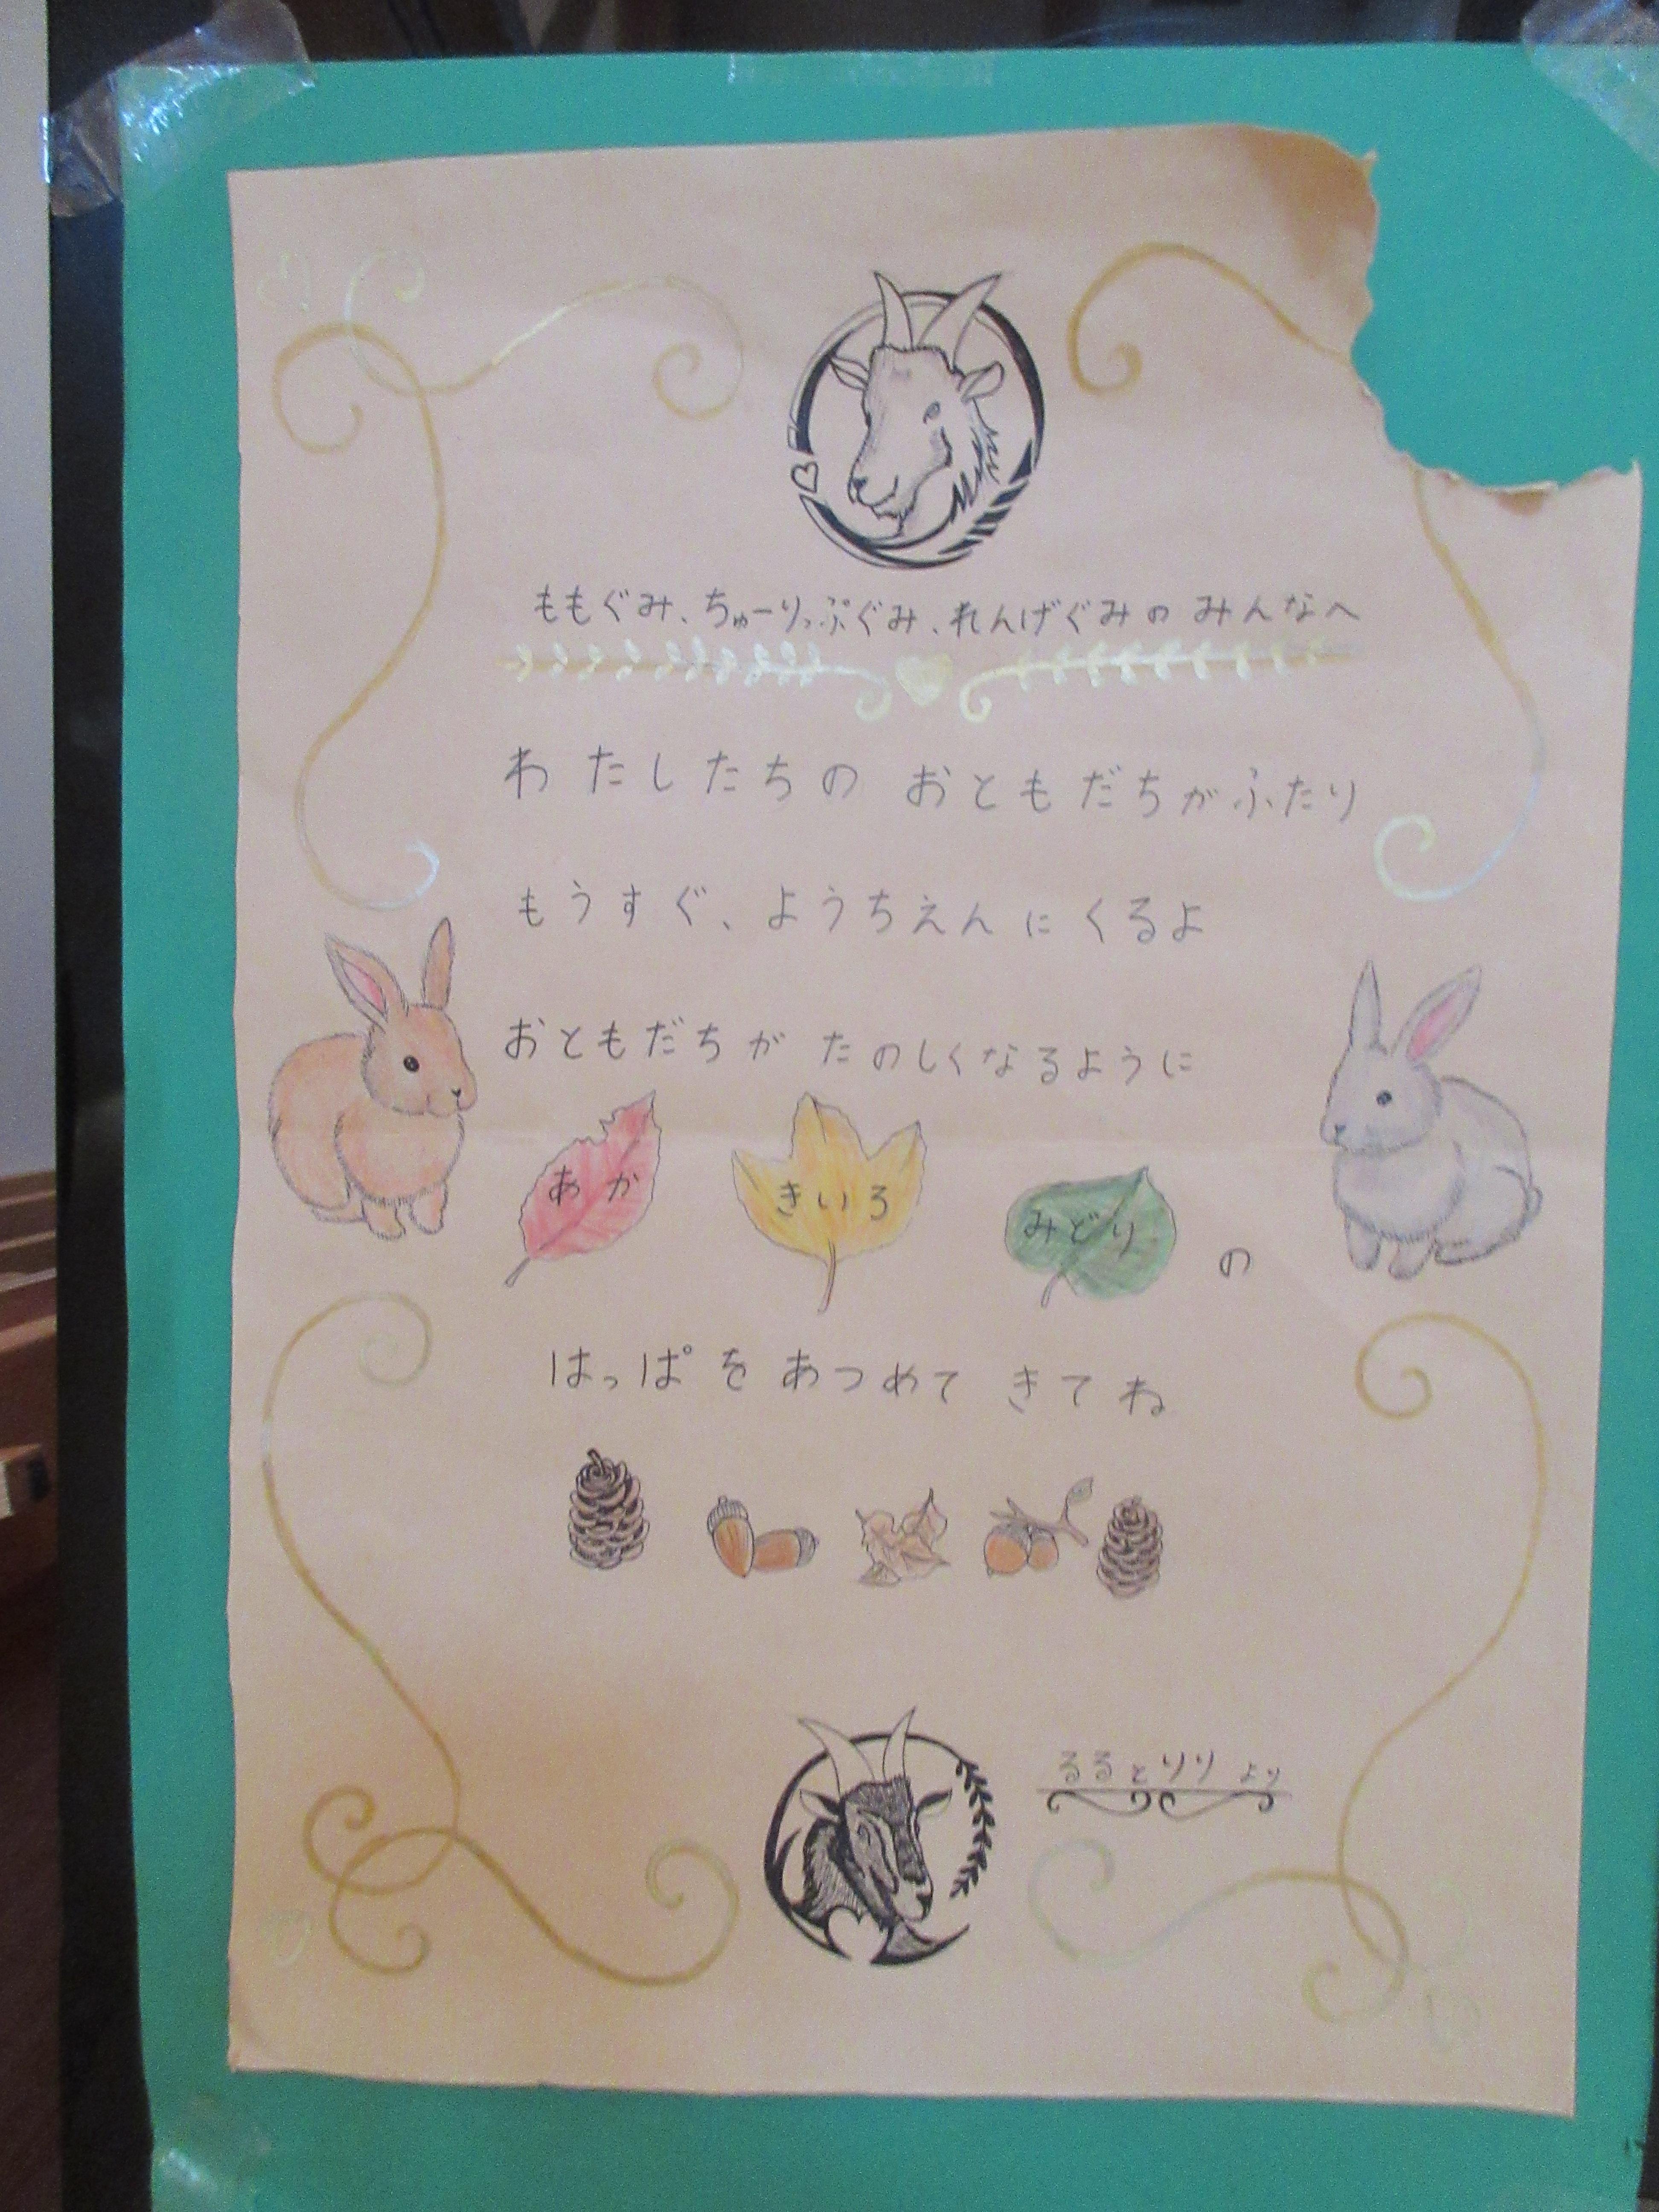 ももぐみ、ちゅーりっぷぐみ、れんげぐみの みんなへ
わたしたちの おともだちがふたり
もうすぐ、ようちえんに くるよ
おともだちが たのしくなるように
あか きいろ みどり の
はっぱを あつめて きてね
るるとりり より